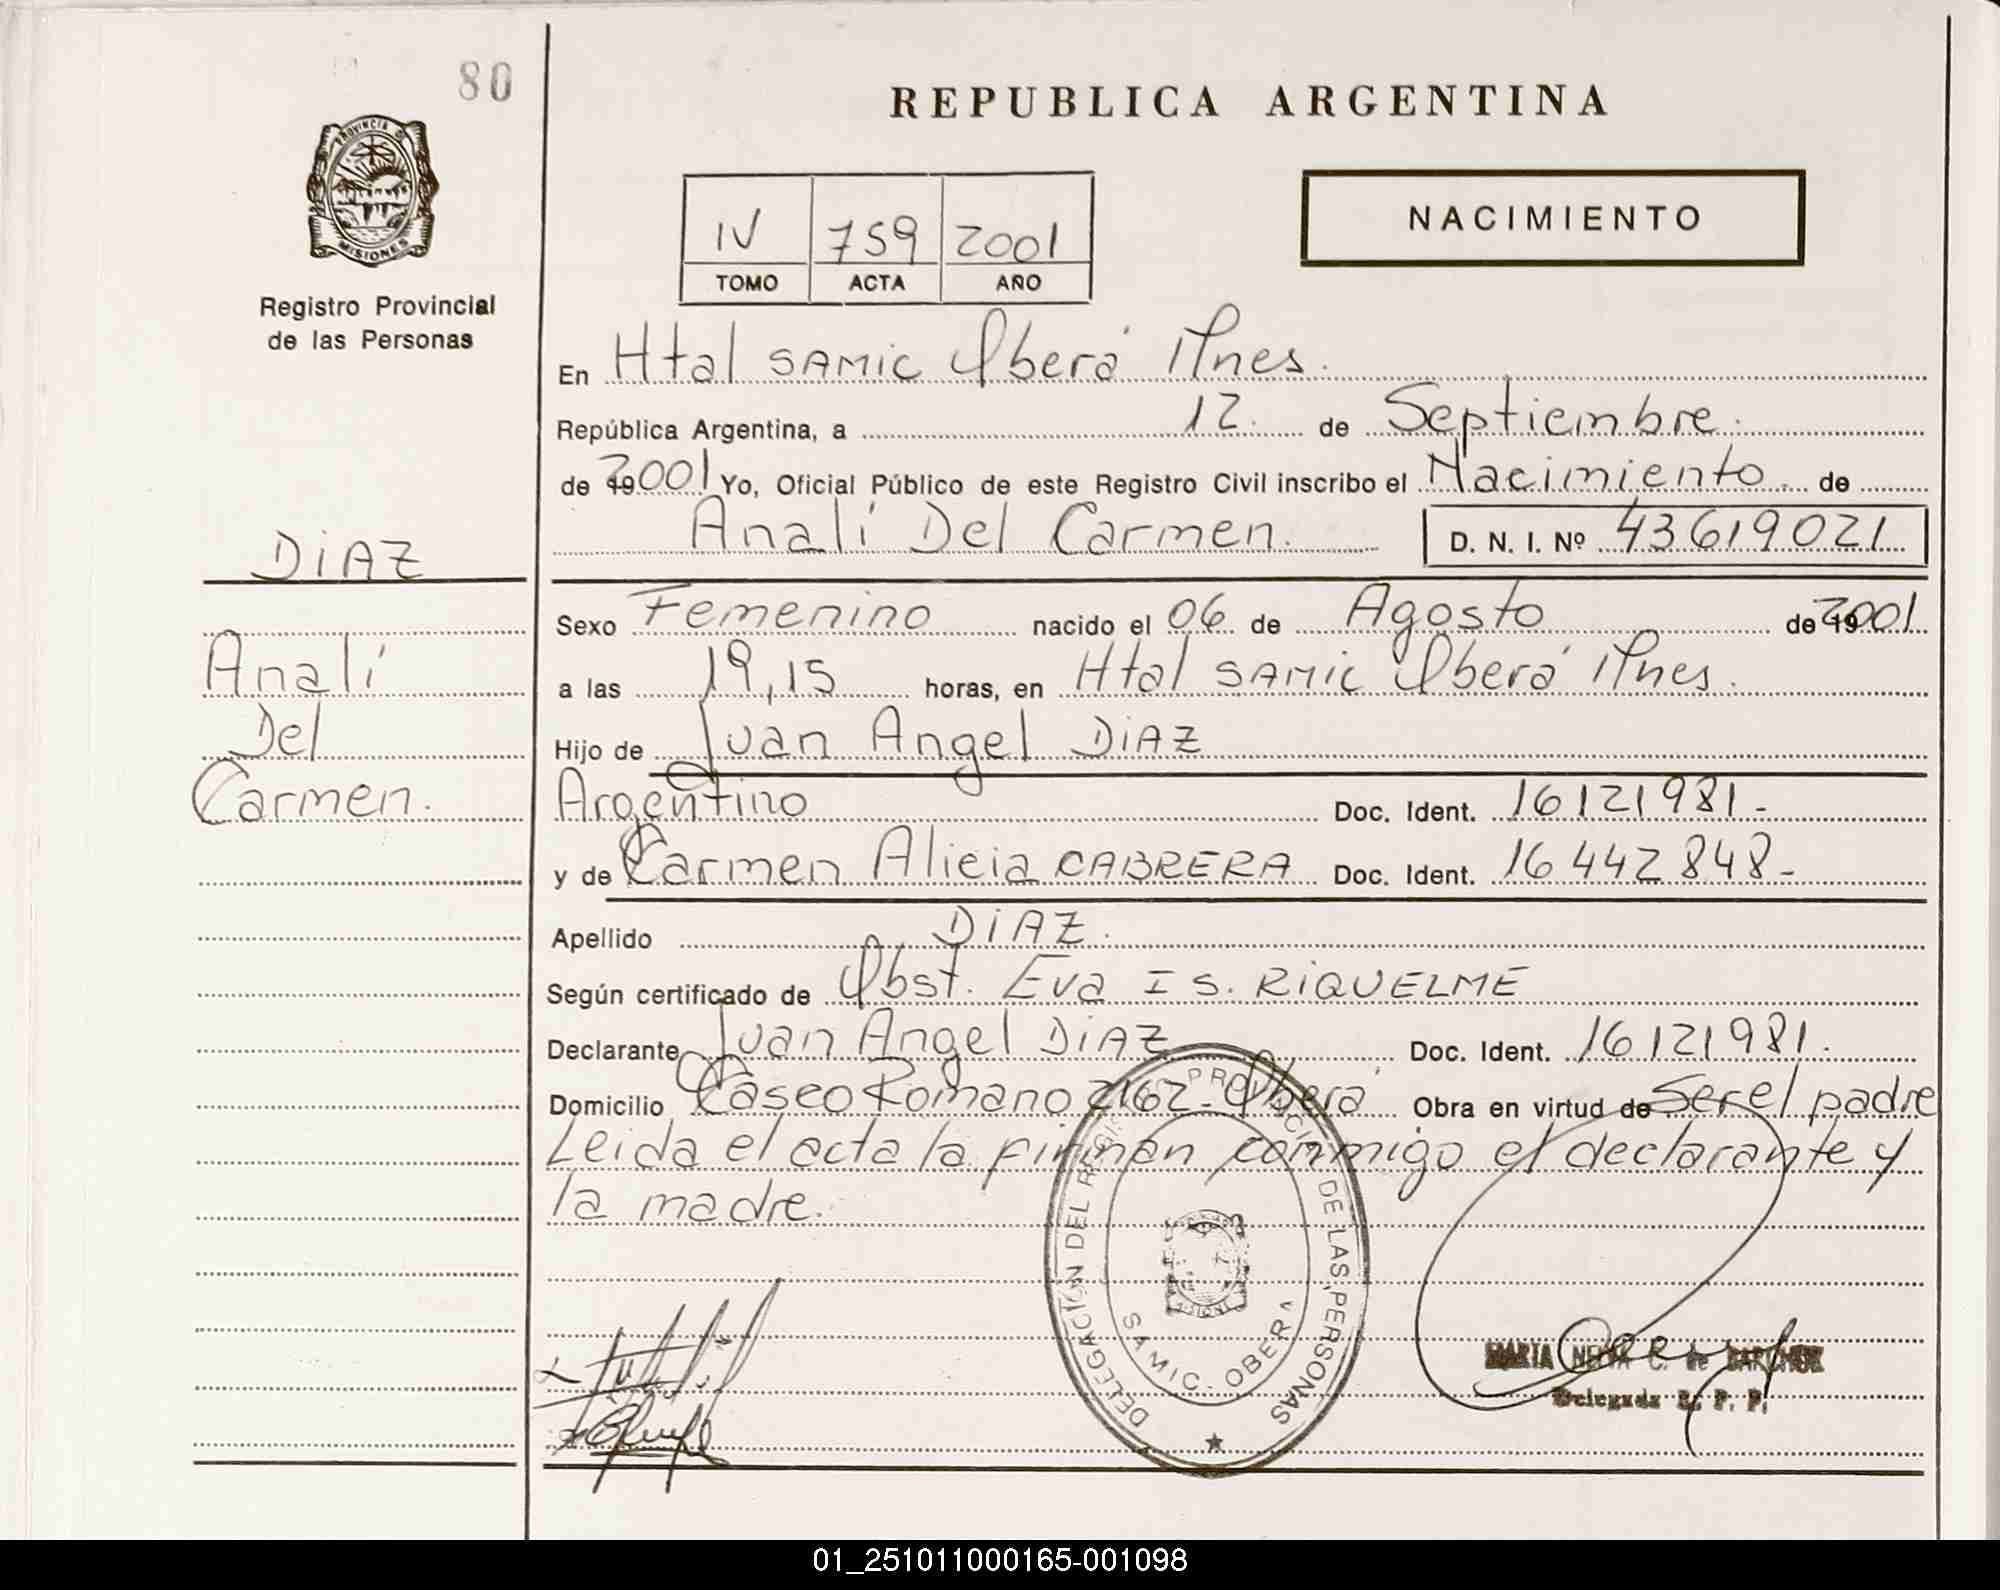 80
REPUBLICA ARGENTINA
PROVINCIA D
MISIONES
NACIMIENTO
IV 759 2001
TOMO ACTA AÑO
Registro Provincial
de las Personas
En Htal SAMIC Oberá Mnes.
República Argentina, a 12 de Septiembre.
de 2001 Yo, Oficial Público de este Registro Civil inscribo el Nacimiento de
Analí Del Carmen. D. N. I. Nº 43619021
DIAZ
Sexo Femenino nacido el 06 de Agosto de 2001
Analí
a las 19,15 horas, en Htal SAMIC Oberá Mnes.
Del
Hijo de Juan Angel DIAZ
Carmen.
Argentino Doc. Ident. 16121981-
y de Carmen Alicia CABRERA Doc. Ident. 16442848-
Apellido DIAZ.
Según certificado de Obst. Eva I S. RIQUELME
Declarante Juan Angel DIAZ Doc. Ident. 16121981.
Domicilio Caseo Romano 2162- Oberá Obra en virtud de Ser el padre
Leida el acta la firman conmigo el declarante y
la madre.
DELEGACION DEL REGISTRO PROVINCIAL DE LAS PERSONAS
SAMIC. OBERA
MISIONES
MARIA C. de
Delegada R. P. P.
01_251011000165-001098